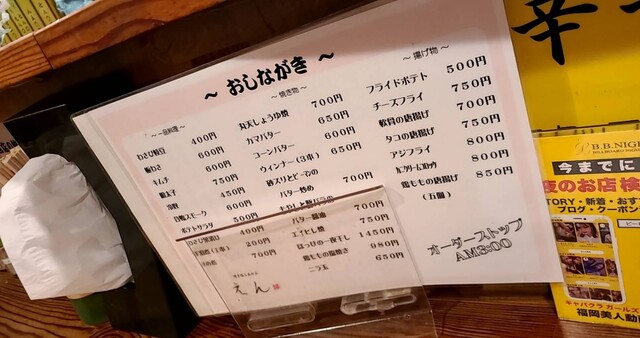 ～ おしながき ～
～一品料理～
わさび枝豆 400円
板わさ 600円
キムチ 600円
明太子 750円
450円
白鴨スモーク 600円
ポテトサラダ 500円
400円
200円
700円
～焼き物～
丸天しょうゆ焼 700円
カマバター 650円
コーンバター 600円
ウィンナー（3本） 650円
バター炒め 700円
もやしと豚バラの
バター醤油 700円
エイヒレ焼 750円
ほっけの一夜干し 1450円
鶏ももの塩焼き 980円
ニラ玉 650円
～揚げ物～
フライドポテト 500円
チーズフライ 750円
軟骨の唐揚げ 700円
タコの唐揚げ 750円
アジフライ 800円
カニクリームコロッケ 800円
鶏ももの唐揚げ 850円
（五個）
オーダーストップ
AM3:00
えん
辛
B.B.NIGH
今までに
夜のお店検
TORY・新着・おす
ブログ・クーポン
キャバクラ ガールズ
福岡美人動画